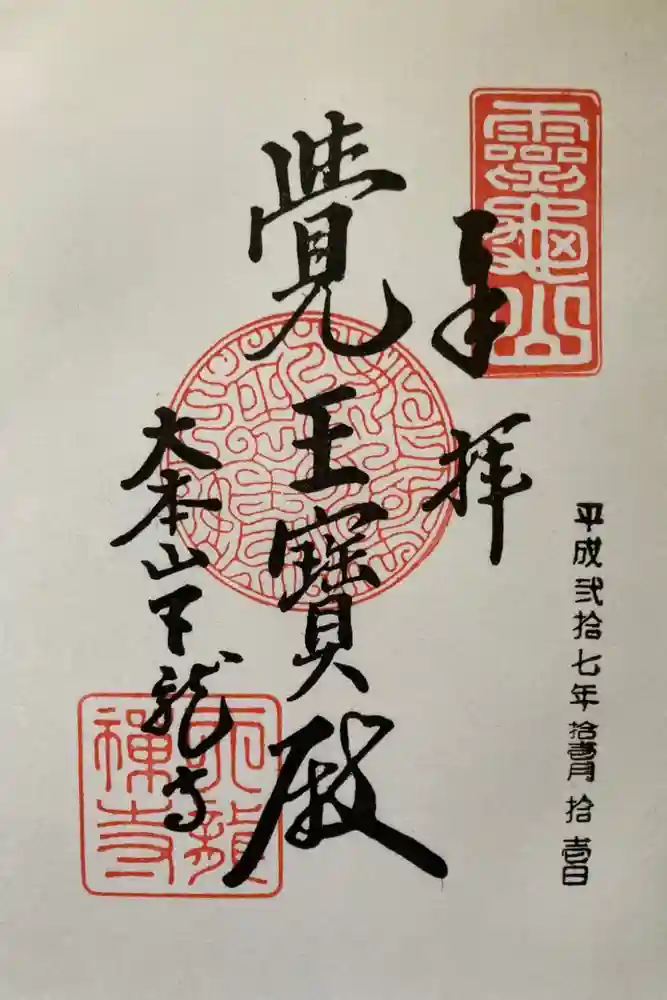 靈龜山
平成弐拾七年拾壹月拾壹日
奉拝
覺王寶殿
大本山天龍寺
天龍
禪寺